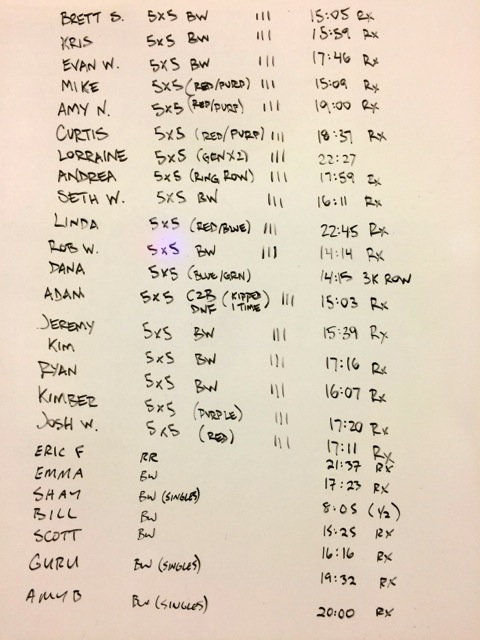 BRETT S. 5x5 BW III 15:05 Rx
KRIS 5x5 BW III 15:59 Rx
EVAN W. 5x5 BW III 17:46 Rx
MIKE 5x5 (RED/PURP) III 15:09 Rx
AMY N. 5x5 (RED/PURP) III 19:00 Rx
CURTIS 5x5 (RED/PURP) III 18:37 Rx
LORRAINE 5x5 (GRNX2) III 22:27
ANDREA 5x5 (RING ROW) III 17:59 Rx
SETH W. 5x5 BW III 16:11 Rx
LINDA 5x5 (RED/BLUE) III 22:45 Rx
ROB W. 5x5 BW III 14:14 Rx
DANA 5x5 (BLUE/GRN) 14:15 3K ROW
ADAM 5x5 C2B DNF (KIPPED 1 TIME) III 15:03 Rx
JEREMY 5x5 BW III 15:39 Rx
KIM 5x5 BW III 17:16 Rx
RYAN 5x5 BW III 16:07 Rx
KIMBER 5x5 (PURPLE) III 17:20 Rx
JOSH W. 5x5 (RED) III 17:11 Rx
ERIC F RR 21:37 Rx
EMMA BW 17:23 Rx
SHAY BW (SINGLES) 8:05 (1/2)
BILL BW 15:25 Rx
SCOTT BW 16:16 Rx
GURU BW (SINGLES) 19:32 Rx
AMY B BW (SINGLES) 20:00 Rx